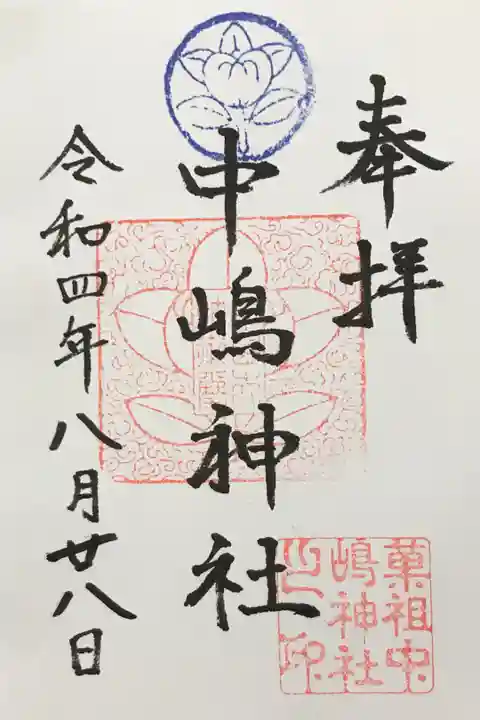 奉拝
中嶋神社
令和四年八月廿八日
菓祖中
嶋神社
之印